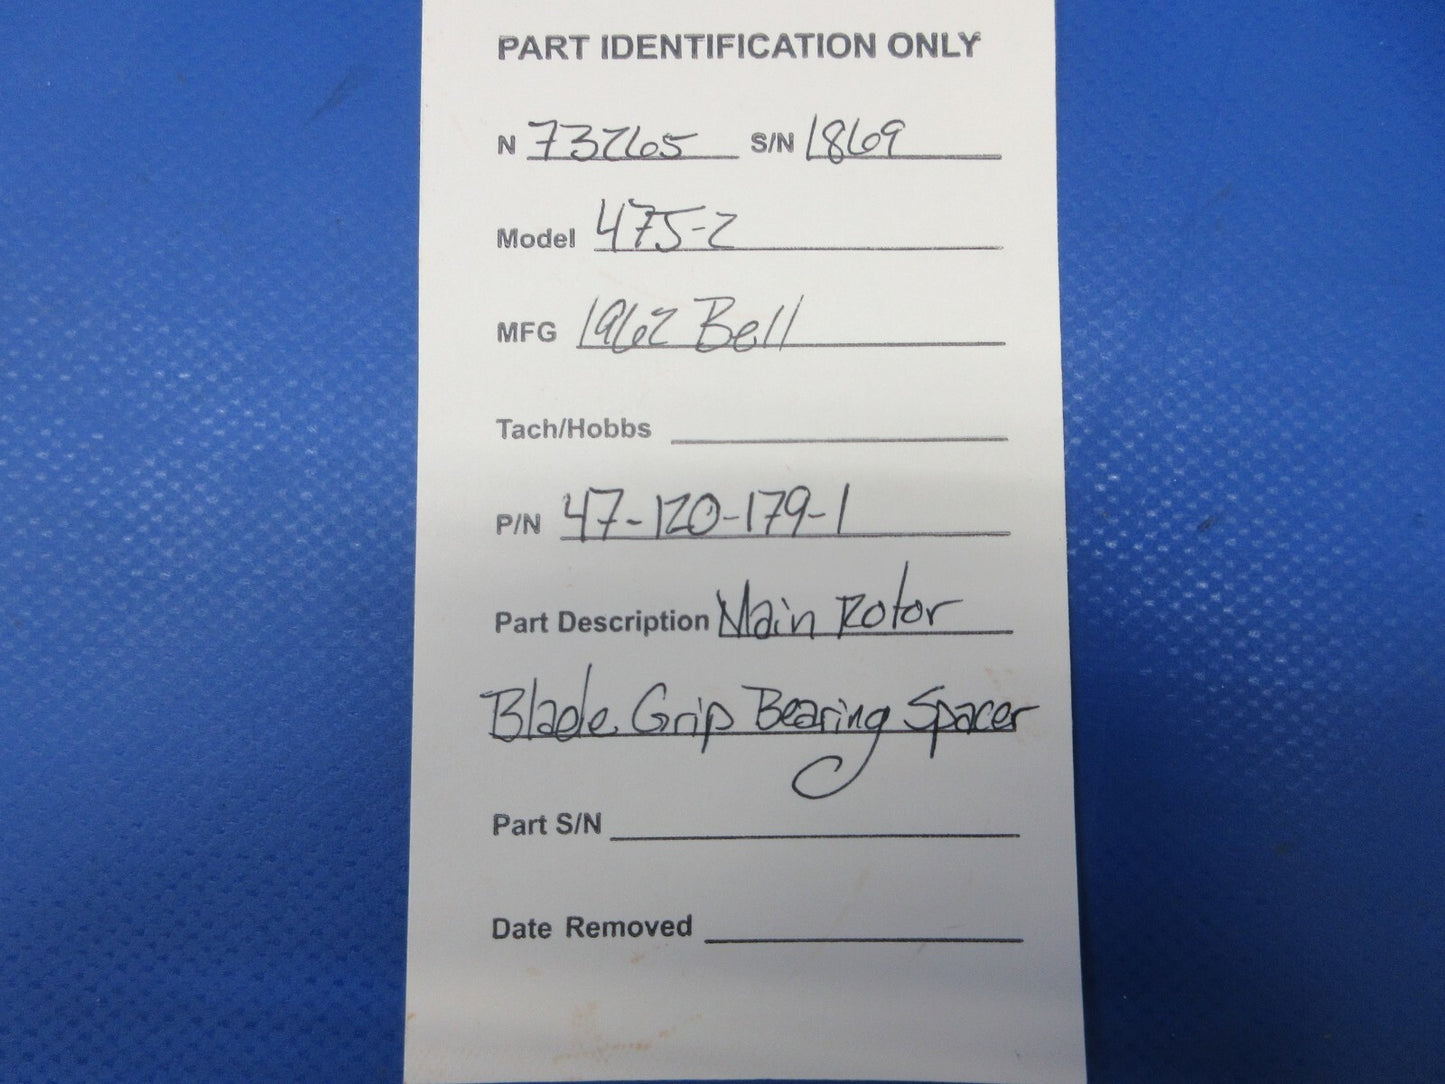 PART IDENTIFICATION ONLY
N 73265 S/N 1869
Model 47J-2
MFG 1962 Bell
Tach/Hobbs
P/N 47-120-179-1
Part Description Main Rotor
Blade Grip Bearing Spacer
Part S/N
Date Removed